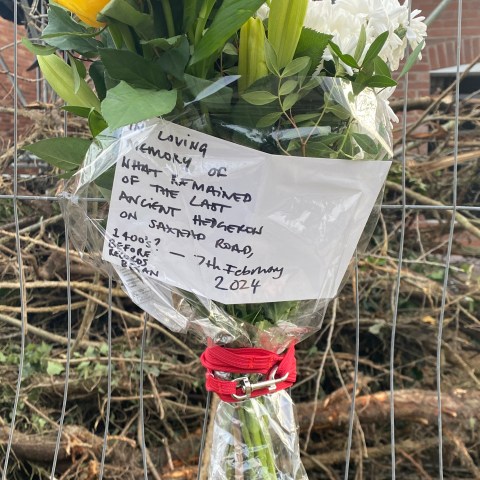 IN LOVING
MEMORY OF
WHAT REMAINED
OF THE LAST
ANCIENT HEDGEROW
ON SAXTEAD ROAD,
1400's? — 7th February
BEFORE 2024
RECORDS
BEGAN